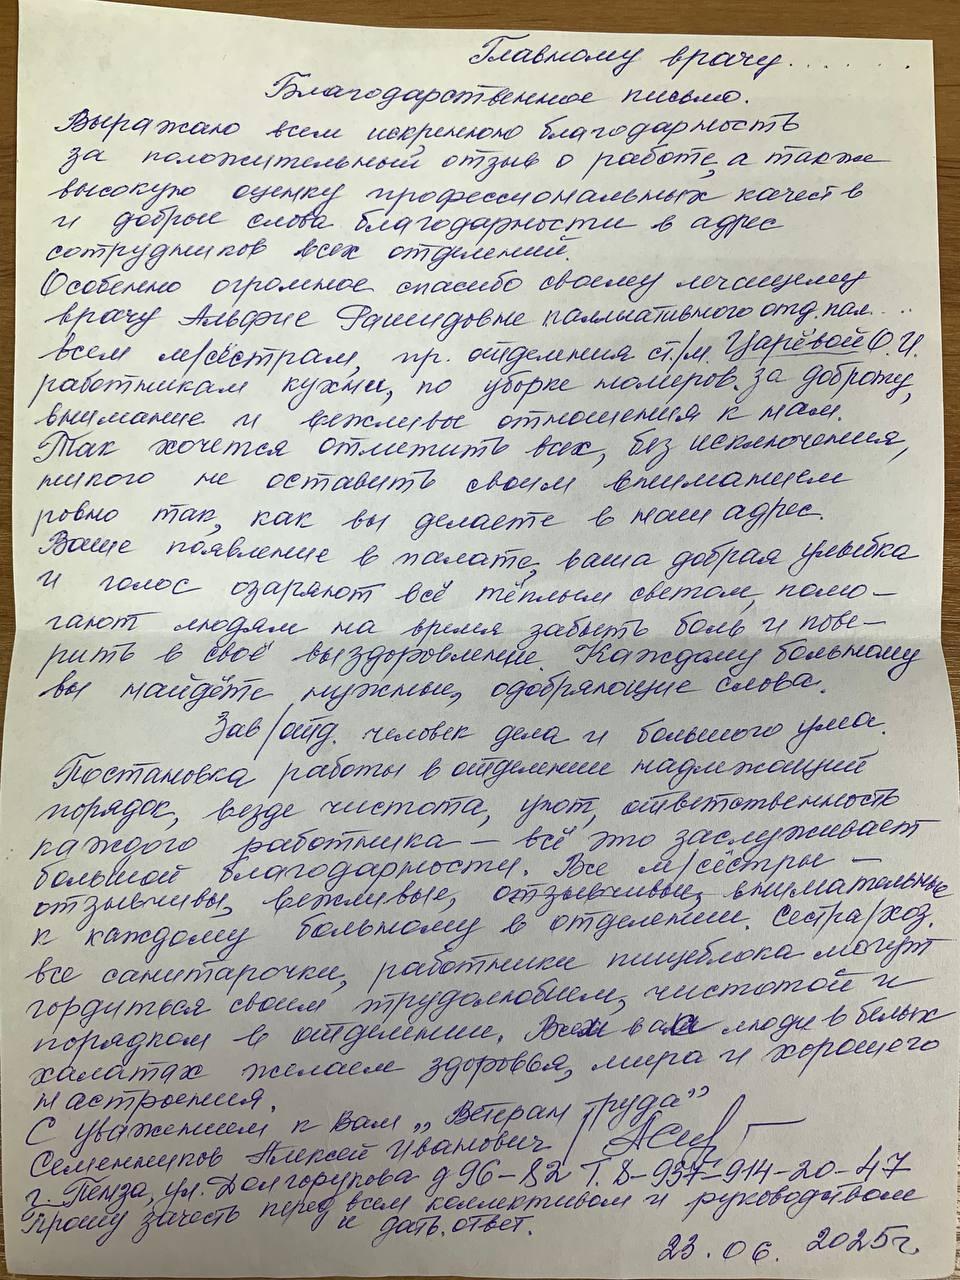 Главному врачу.......
Благодарственное письмо.
Выражаю всем искреннюю благодарность
за положительный отзыв о работе, а также
высокую оценку профессиональных качеств
и добрые слова благодарности в адрес
сотрудников всех отделений.
Особенно огромное спасибо своему лечащему
врачу Альфие Рашидовне паллиативного отд. пал...
всем м/сёстрам, пр. отделения ст./м. Царёвой О.И.
работникам кухни, по уборке номеров. за доброту,
внимание и вежливы отношения к нам.
Так хочется отметить всех, без исключения,
никого не оставить своим вниманием
ровно так, как вы делаете в наш адрес.
Ваше появление в палате, ваша добрая улыбка
и голос озаряют всё тёплым светом, помо-
гают людям на время забыть боль и пове-
рить в своё выздоровление. Каждому больному
вы найдёте нужные, одобряющие слова.
Зав/отд. человек дела и большого ума.
Постановка работы в отделении надлежащий
порядок, везде чистота, уют, ответственность
каждого работника – всё это заслуживает
большой благодарности. Все м/сёстры –
отзывчивы, вежливые, отзывчивые, внимательные
к каждому больному в отделении. Сестра/хоз.
все санитарочки, работники пищеблока могут
гордиться своим трудолюбием, чистотой и
порядком в отделении. Всем вам люди в белых
халатах желаем здоровья, мира и хорошего
настроения.
С уважением к Вам „Ветеран труда”
Семенников Алексей Иванович
г. Пенза, ул. Долгорукова д 96-82 Т. 8-937-914-20-47
Прошу зачесть перед всем коллективом и руководством
и дать ответ.
23.06. 2025г.